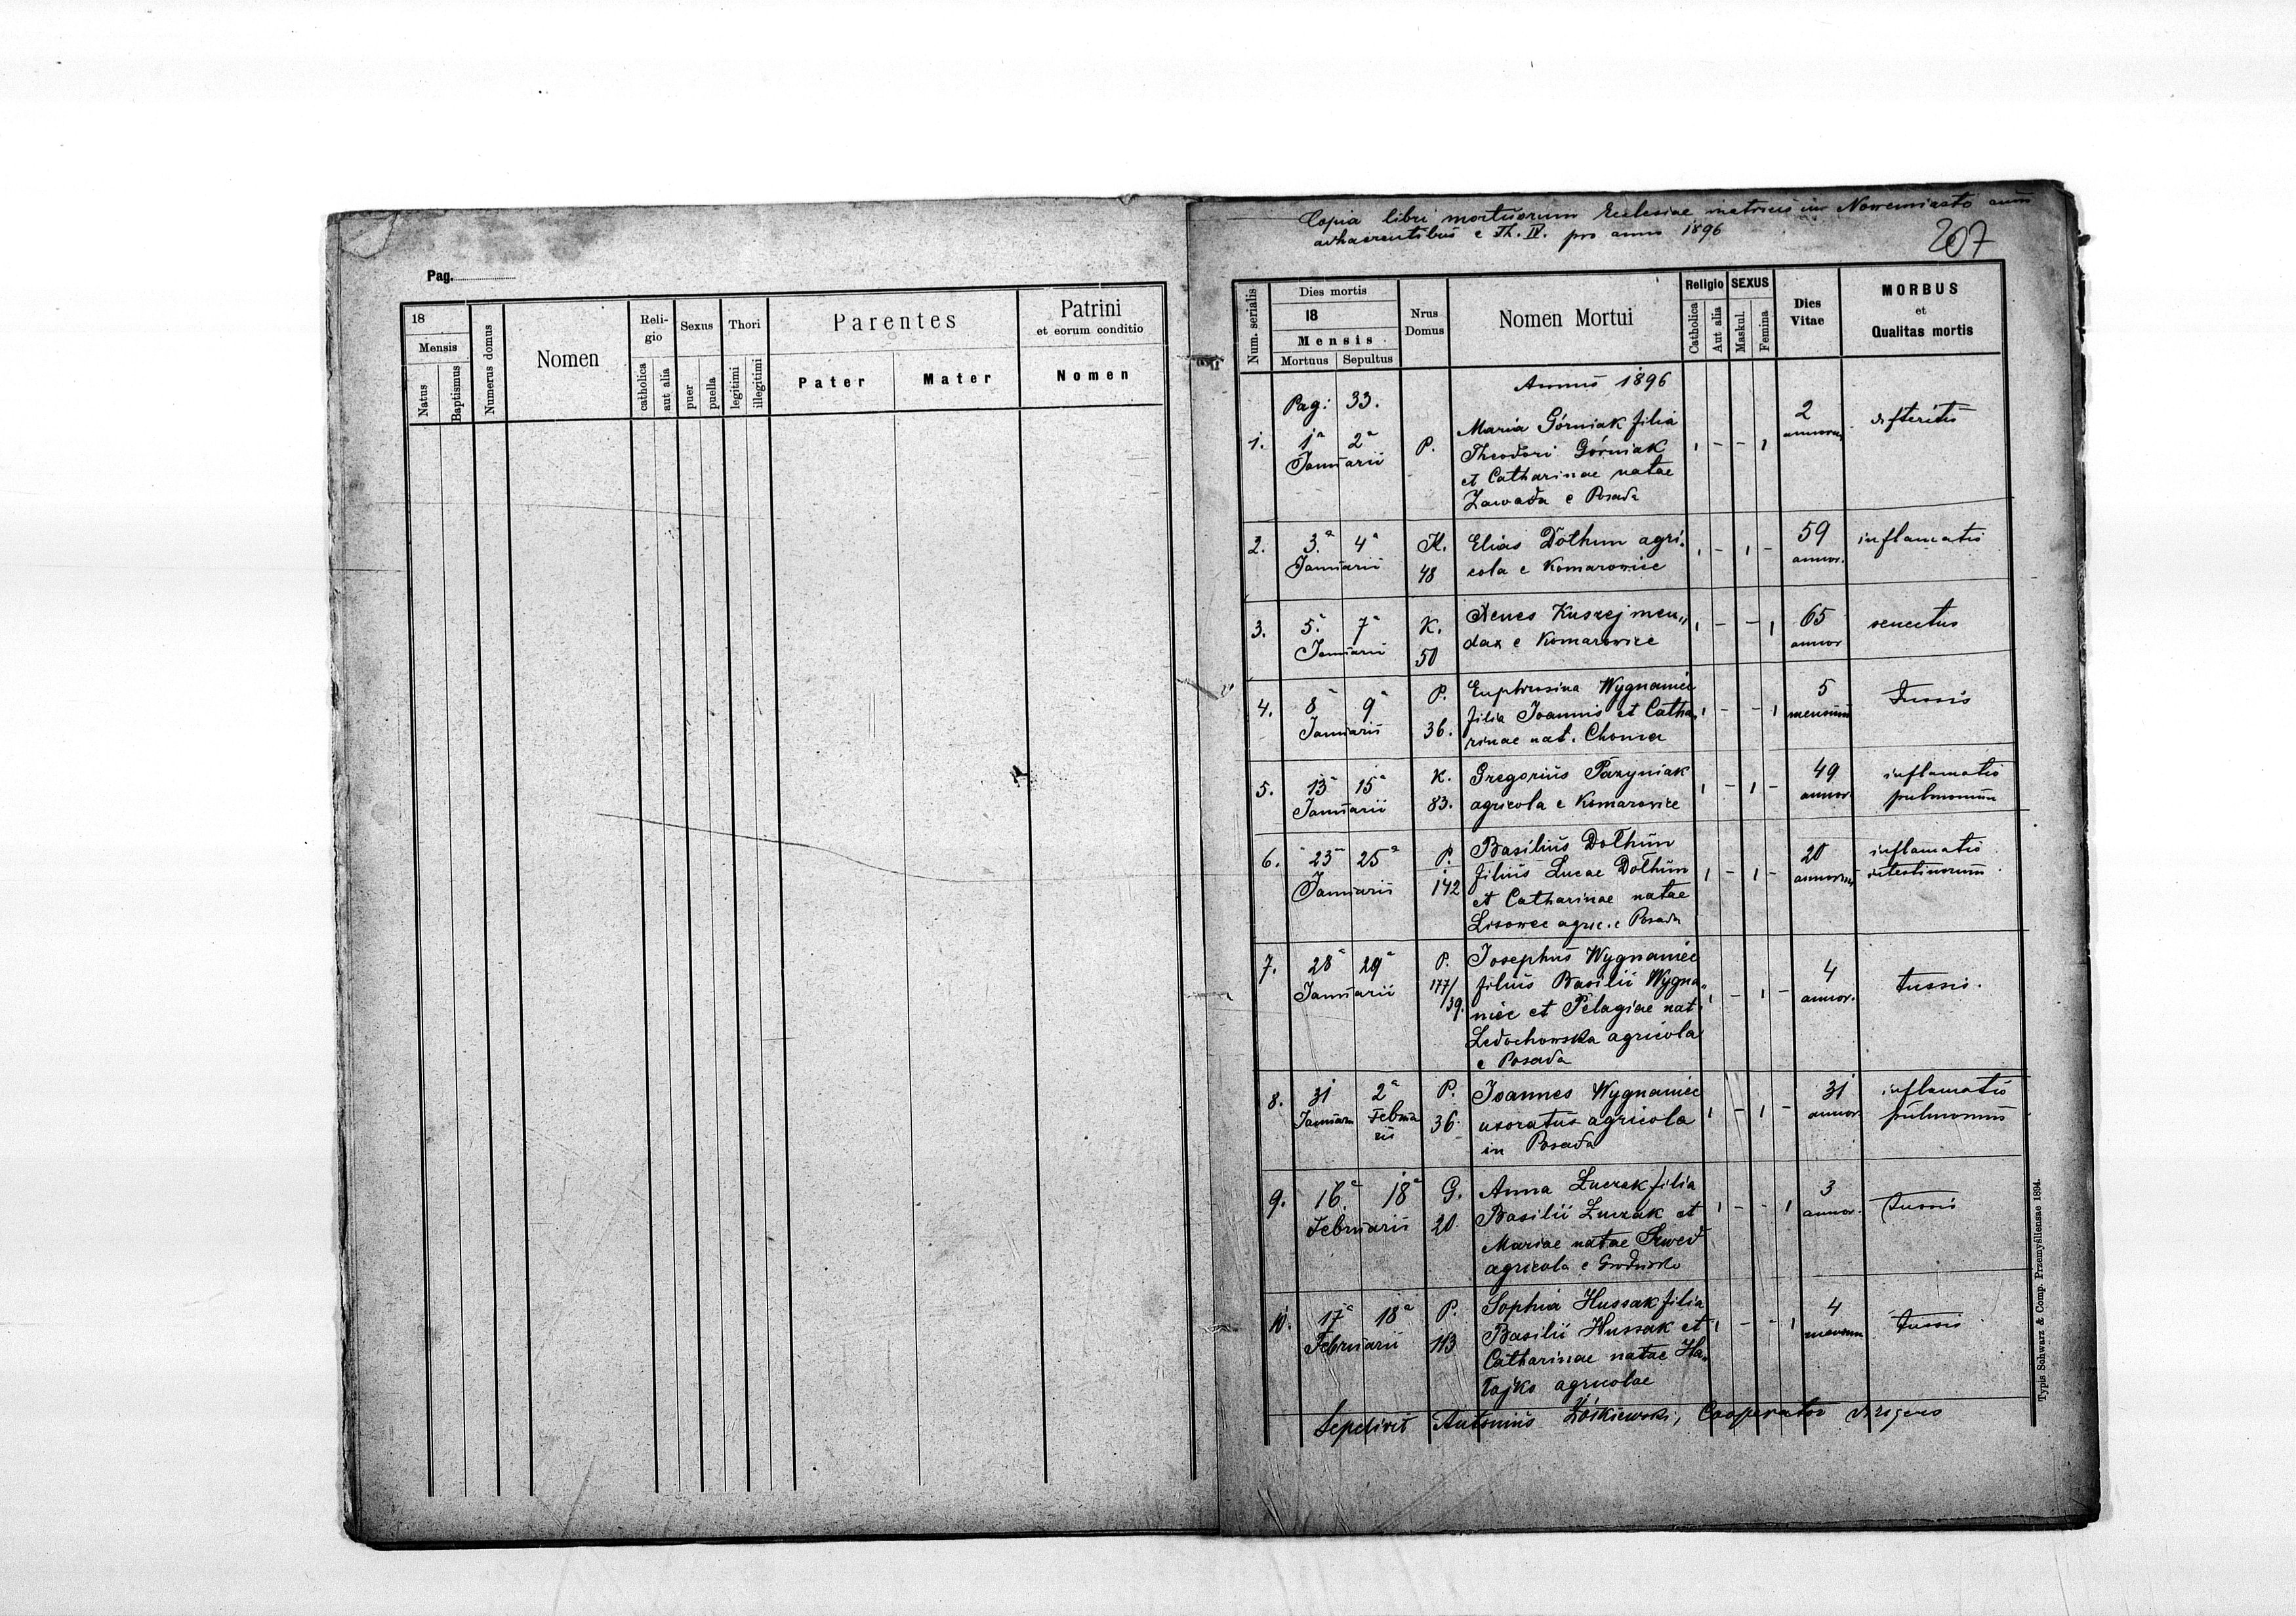 Pag.
18
Mensis
Natus
Baptismus
Numerus domus
Nomen
Reli-
gio
catholica
aut alia
Sexus
puer
puella
Thori
legitimi
illegitimi
Parentes
Pater
Mater
Patrini
et eorum conditio
Nomen
Copia libri mortuorum Ecclesiae matricis in Nowemiasto cum
adhaerentibus e Th. IV. pro anno 1896
207
Num. serialis
Dies mortis
18
Mensis
Mortuus Sepultus
Nrus
Domus
Nomen Mortui
Religio
Catholica
Aut alia
SEXUS
Maskul.
Femina
Dies
Vitae
MORBUS
et
Qualitas mortis
Annus 1896
Pag: 33.
1. 1a 2a Januarii P.
Maria Górniak filia
Theodori Górniak
et Catharinae natae
Zawada e Posada
1 - - 1
2 annorum
difteritis
2. 3a 4a Januarii K. 48
Elias Dołhun agri-
cola e Komarowice
1 - 1 -
59 annor.
inflamatio
3. 5a 7a Januarii K. 50
Xenes Kuszej men„
dax e Komarowice
1 - - 1
65 annor
senectus
4. 8a 9a Januarii P. 36.
Euphrosina Wygnaniec
filia Joannis et Catha„
rinae nat. Choma
1 - - 1
5 mensium
tussis
5. 13a 15a Januarii K. 83.
Gregorius Paryniak
agricola e Komarowice
1 - 1 -
49 annor.
inflamatio
pulmonum
6. 23a 25a Januarii P. 142
Basilius Dołhun
filius Lucae Dołhun
et Catharinae natae
Lisowec agric. e Posada
1 - 1 -
20 annorum
inflamatio
intestinorum
7. 28a 29a Januarii P. 177/39.
Josephus Wygnaniec
filius Basilii Wygna„
niec et Pelagiae nat.
Ledochowska agricola
e Posada
1 - 1 -
4 annor.
tussis.
8. 31 Januarii 2a Februa
rii P. 36.
Joannes Wygnaniec
uxoratus agricola
in Posada
1 - 1 -
31 annor
inflamatio
pulmonum
9. 16a 18a Februarii G. 20.
Anna Łuczak filia
Basilii Łuczak et
Mariae natae Szwed
agricola e Grodzisko
1 - - 1
3 annor.
tussis
10. 17a 18a Februarii P. 113
Sophia Hussak filia
Basilii Hussak et
Catharinae natae Ha„
łajko agricolae
1 - - 1
4 mensium
tussis
Sepelivit Antonius Żółkiewski, Cooperator dirigens
Typis Schwarz & Comp. Przemyśliensae 1894.